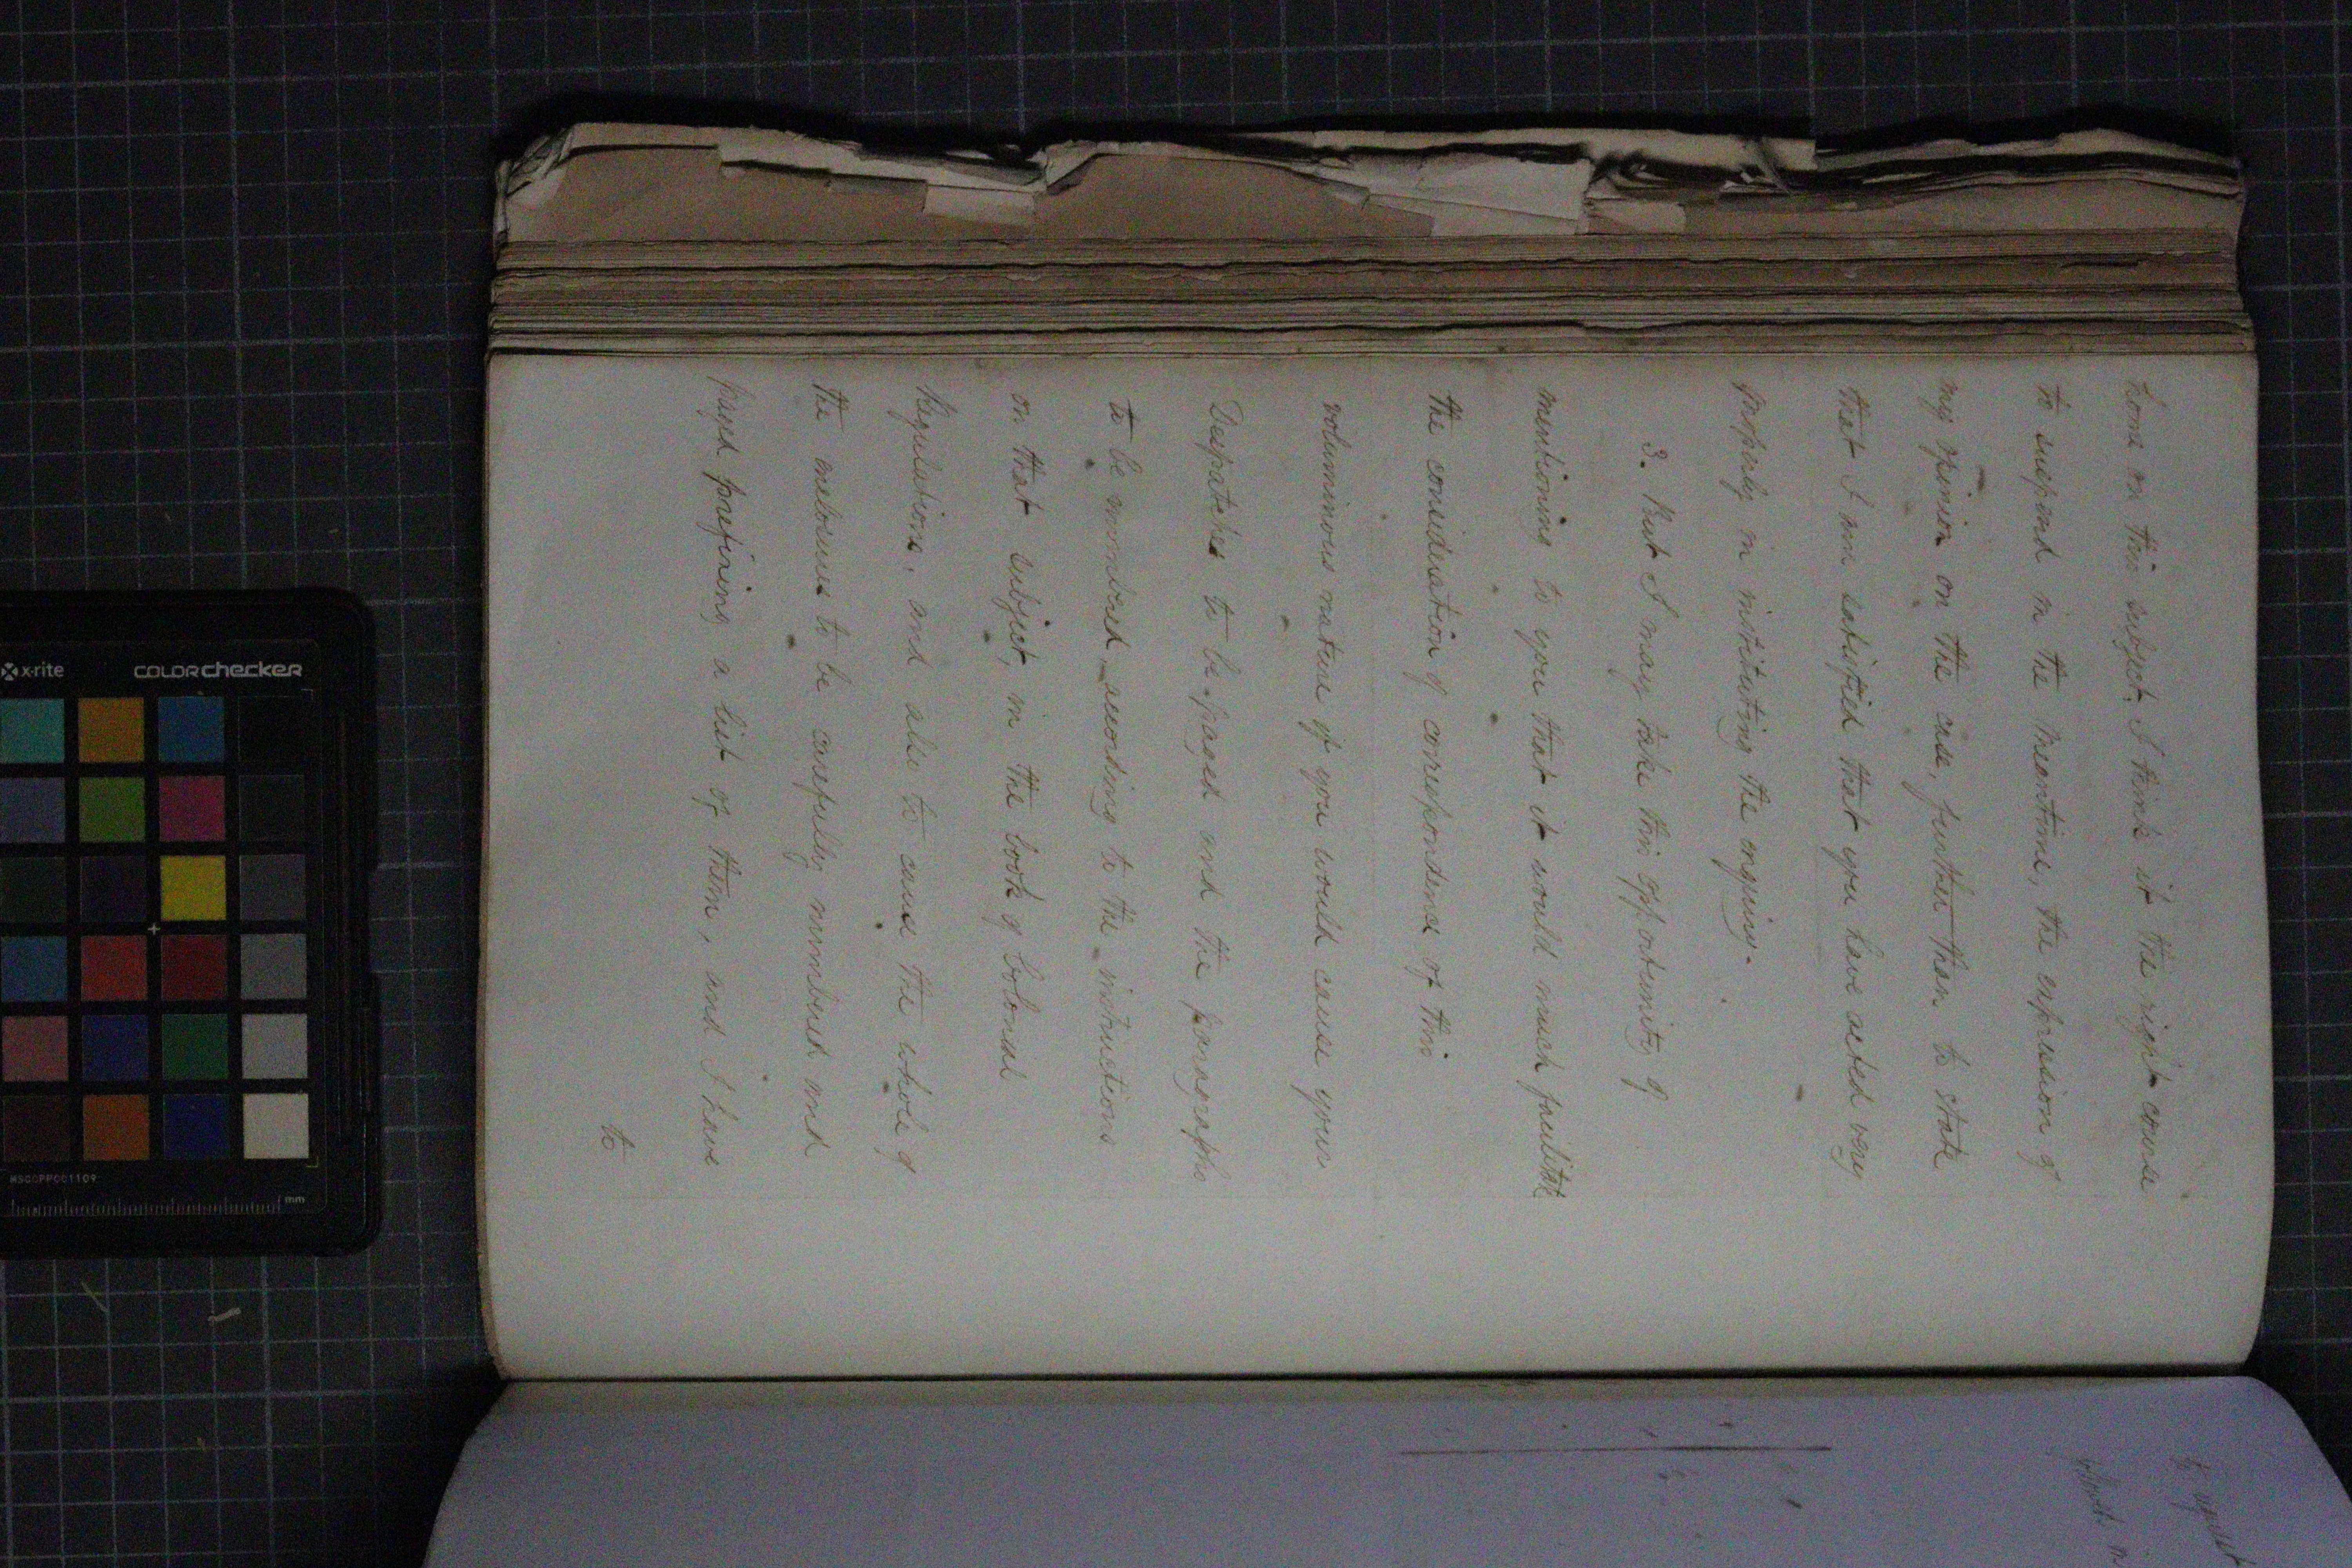 home on this subject, I think it the right course
to suspend in the meantime, the expression of
my opinion on the case, further than to state
that I am satisfied that you have acted very
properly in instituting the enquiry.
3. But I may take this opportunity of
mentioning to you that it would much facilitate
the consideration of correspondence of this
voluminous nature if you would cause your
Despatches to be paged and the paragraphs
to be numbered, according to the instructions
on that subject, in the book of Colonial
Regulations, and also to cause the whole of
the enclosures to be carefully numbered and
paged prefixing a list of them, and I have
to
x-rite colorchecker
MSCCPPCC1109
mm